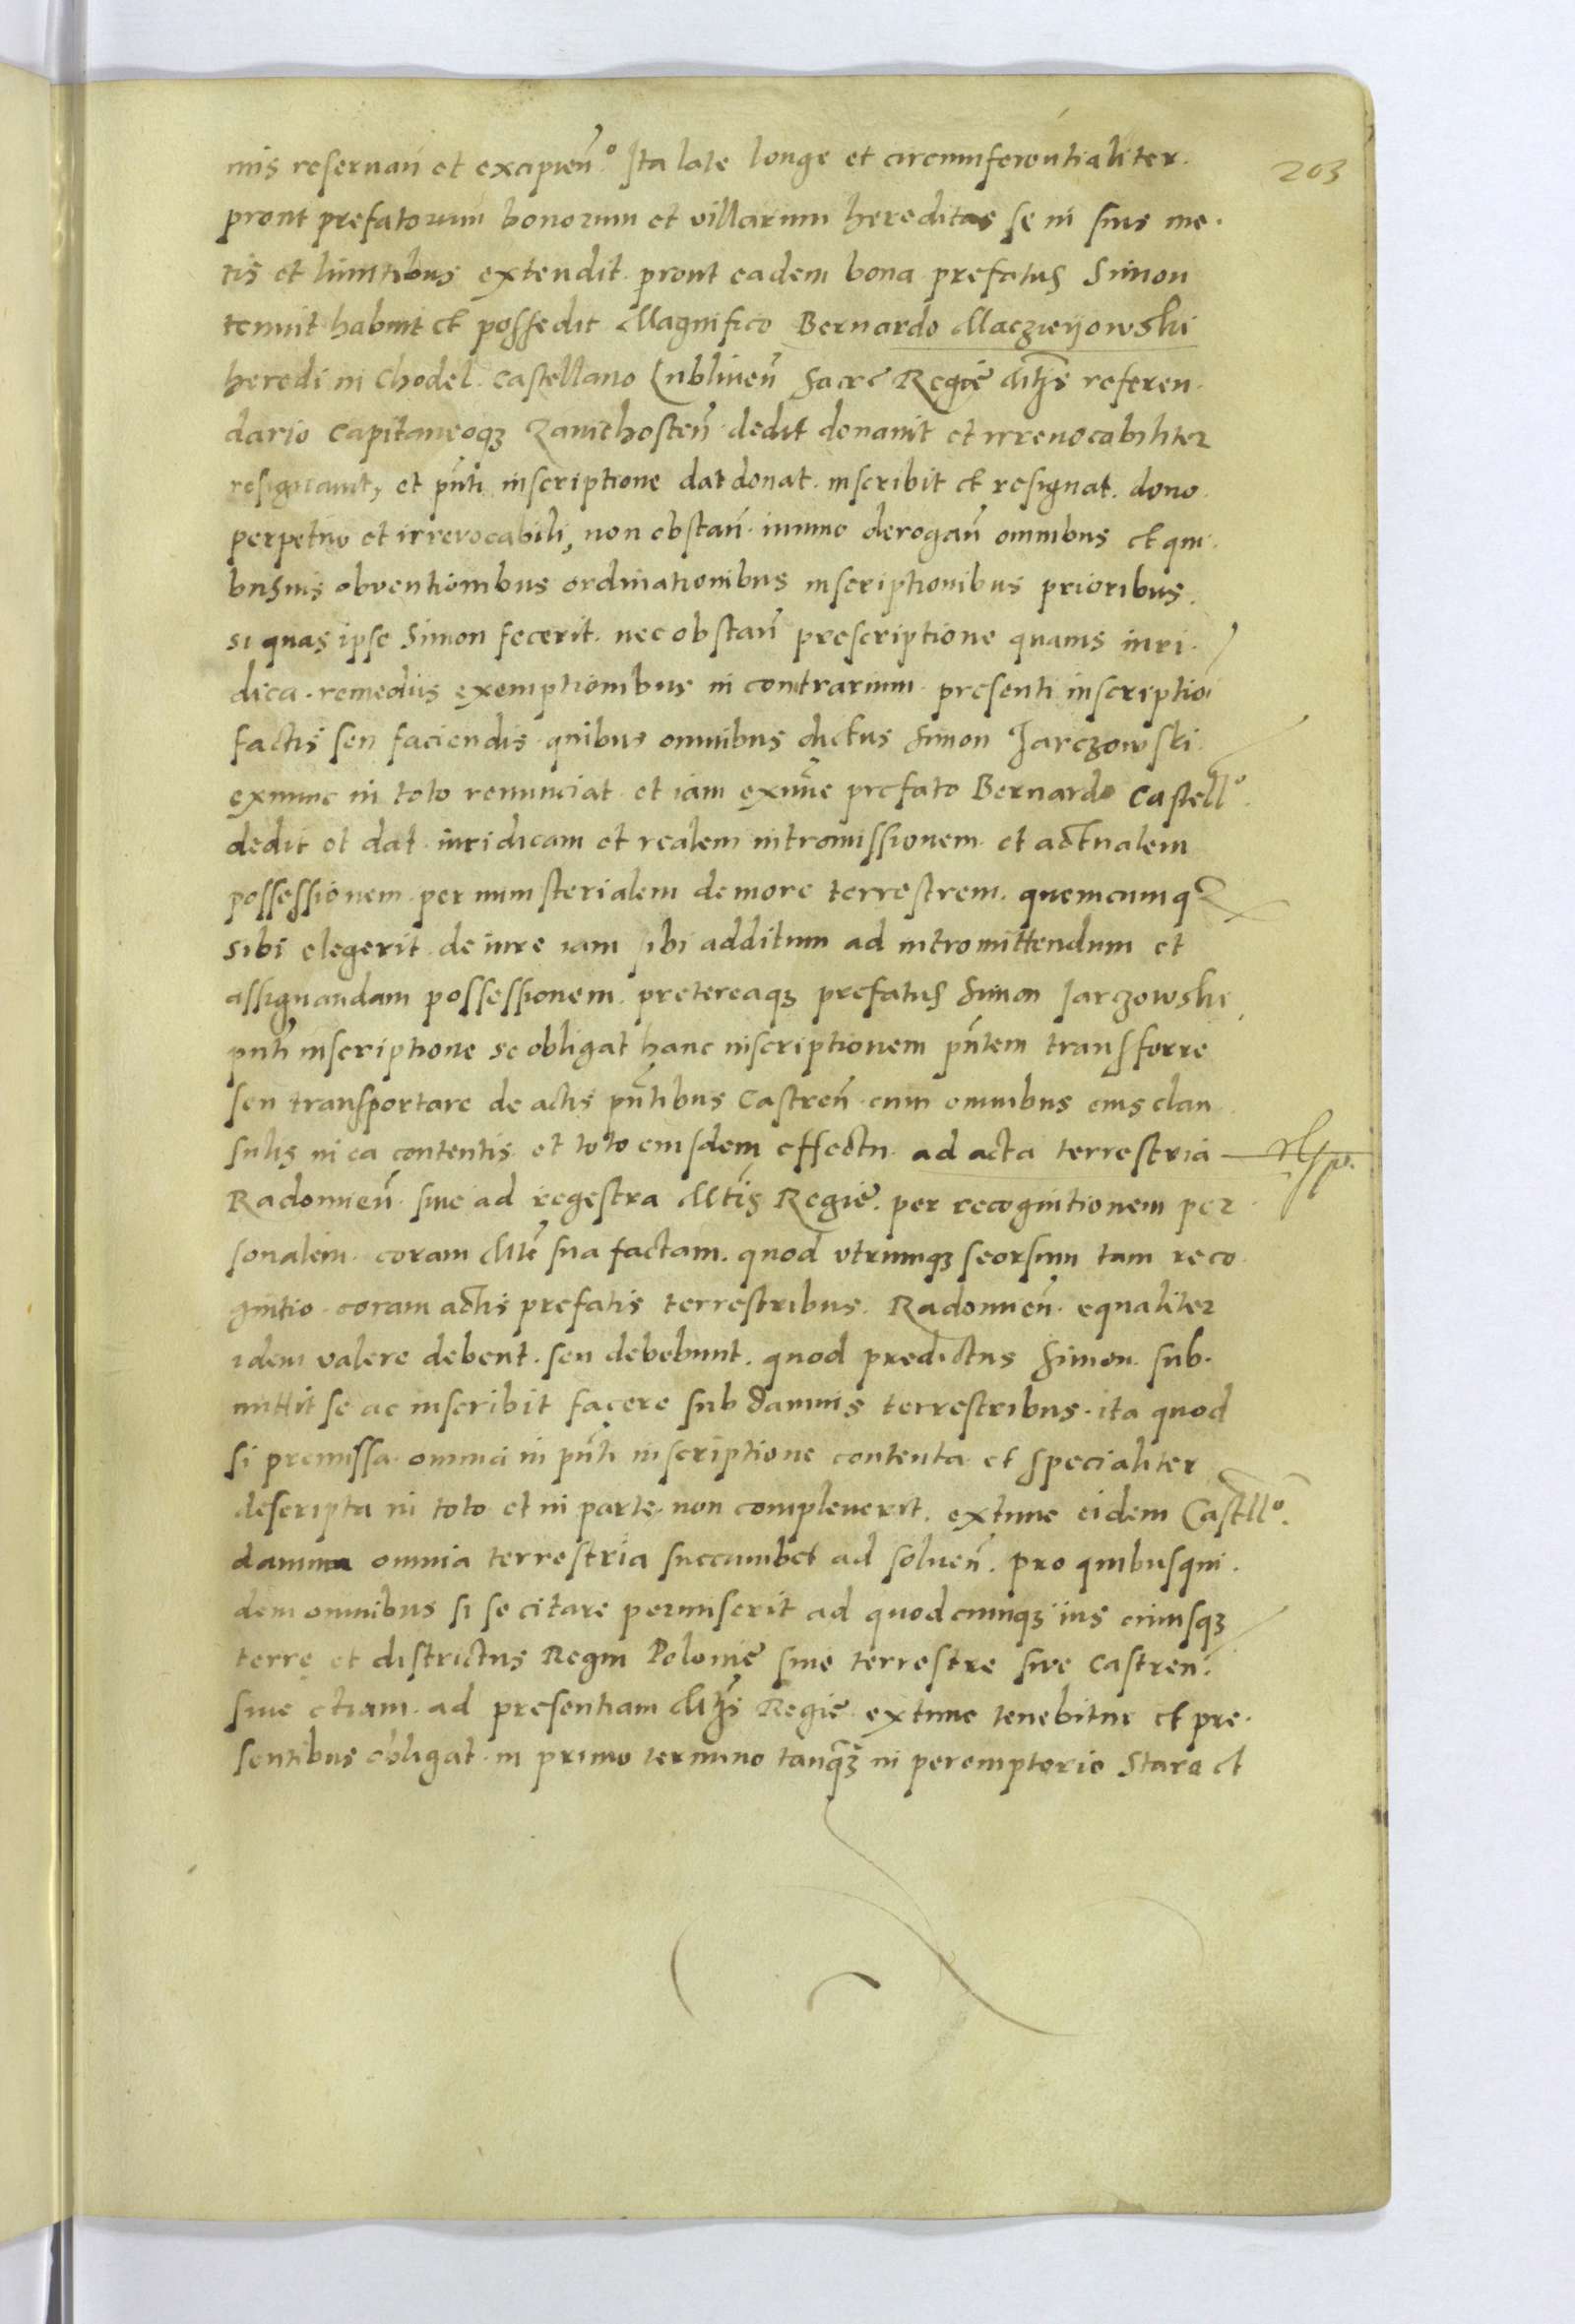 203
nis reseruan̄ et excipien̄º Ita late longe et circumferentialiter.
prout prefatorum bonorum et villarum hereditas se in suis me.
tis et limitibus extendit. prout eadem bona prefatus Simon
tenuit habuit et possedit Magnifico Bernardo Maczieyowski
heredi in Chodel. Castellano Lublineñ Sacre Regie Mtis referen.
dario Capitaneoqȝ Zawichosteñ dedit donauit et irreuocabiliter
resignauit, et pñti inscriptione dat donat. inscribit et resignat. dono
perpetuo et irrevocabili, non obstañ. immo derogañ omnibus et qui.
busuis obventionibus ordinationibus inscriptionibus prioribus.
si quas ipse Simon fecerit. nec obstañ prescriptione quauis iuri.
dica. remediis exemptionibus in contrarium. presenti inscriptioi
factis seu faciendis quibus omnibus dictus Simon Jarczowski.
exnunc in toto renunciat et iam exnūc prefato Bernardo Castellº.
dedit et dat iuridicam et realem intromissionem et actualem
possessionem per ministerialem de more terrestrem. quemcumqȝ
sibi elegerit de iure iam sibi additum ad intromittendum et
assignandam possessionem. pretereaqȝ prefatus Simon Jarczowski
pñti inscriptione se obligat hanc inscriptionem pñtem transferre
seu transportare de actis pñtibus Castreñ cum omnibus eius clau
sulis in ea contentis et toto eiusdem effectu ad acta terrestria
Radomieñ siue ad regestra Mtis Regie. per recognitionem per
sonalem. coram Mte sua factam. quod vtrumqȝ seorsum tam reco
gnitio coram actis prefatis terrestribus. Radomieñ equaliter
idem valere debent. seu debebunt. quod predictus Simon sub.
mittit se ac inscribit facere sub damnis terrestribus. ita quod
si premissa omnia in pñti inscriptione contenta et specialiter
descripta in toto et in parte non compleuerit. extunc eidem Castllº.
damna omnia terrestria succumbet ad solueñ. pro quibusqui.
dem omnibus si se citare permiserit ad quodcumqȝ ius cuiusqȝ
terre et districtus Regni Polonie siue terrestre sive Castreñ.
siue etiam ad presentiam Mtis Regie extunc tenebitur et pre.
sentibus obligat in primo termino tanqȝ in peremptorio stare et